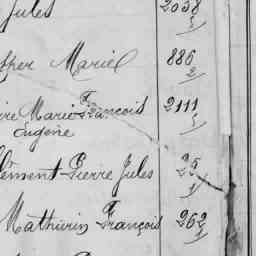 Jules 2038
5
sper Mariel 886
2
ire Marie François 2111
Eugène 5
lément Pierre Jules 25
1
Mathurin François 262
1